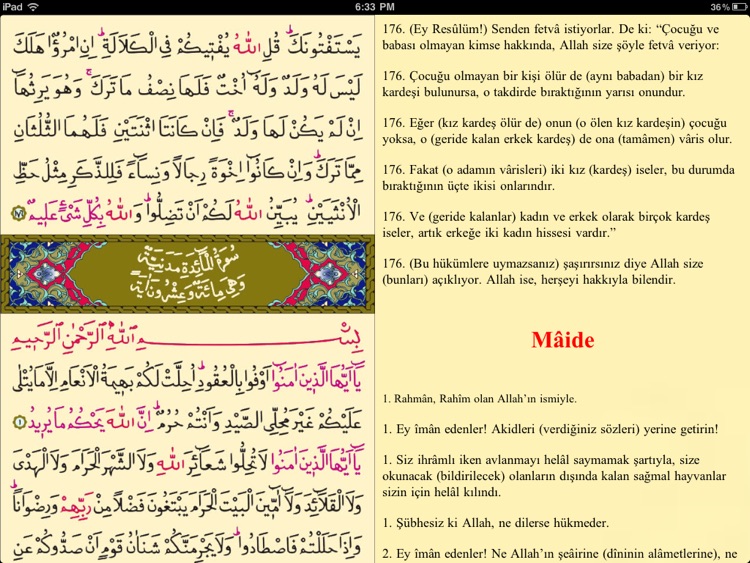 iPad
6:33 PM
36%
يَسْتَفْتُونَكَ قُلِ اللّٰهُ يُفْتِيكُمْ فِي الْكَلَالَةِ اِنِ امْرُؤٌا هَلَكَ
لَيْسَ لَهُ وَلَدٌ وَلَهُٓ اُخْتٌ فَلَهَا نِصْفُ مَا تَرَكَ وَهُوَ يَرِثُهَٓا
اِنْ لَمْ يَكُنْ لَهَا وَلَدٌ فَاِنْ كَانَتَا اثْنَتَيْنِ فَلَهُمَا الثُّلُثَانِ
مِمَّا تَرَكَ وَاِنْ كَانُٓوا اِخْوَةً رِجَالًا وَنِسَٓاءً فَلِلذَّكَرِ مِثْلُ حَظِّ
الْاُنْثَيَيْنِ يُبَيِّنُ اللّٰهُ لَكُمْ اَنْ تَضِلُّوا وَاللّٰهُ بِكُلِّ شَيْءٍ عَلِيمٌ ١٧٦
سُورَةُ الْمَٓائِدَةِ مَدَنِيَّةٌ
وَهِيَ مِائَةٌ وَعِشْرُونَ اٰيَةً
بِسْمِ اللّٰهِ الرَّحْمٰنِ الرَّحِيمِ
يَٓا اَيُّهَا الَّذِينَ اٰمَنُٓوا اَوْفُوا بِالْعُقُودِ اُحِلَّتْ لَكُمْ بَهِيمَةُ الْاَنْعَامِ اِلَّا مَا يُتْلٰى
عَلَيْكُمْ غَيْرَ مُحِلِّي الصَّيْدِ وَاَنْتُمْ حُرُمٌ اِنَّ اللّٰهَ يَحْكُمُ مَا يُرِيدُ ١
يَٓا اَيُّهَا الَّذِينَ اٰمَنُوا لَا تُحِلُّوا شَعَٓائِرَ اللّٰهِ وَلَا الشَّهْرَ الْحَرَامَ وَلَا الْهَدْيَ
وَلَا الْقَلَٓائِدَ وَلَٓا اٰمِّينَ الْبَيْتَ الْحَرَامَ يَبْتَغُونَ فَضْلًا مِنْ رَبِّهِمْ وَرِضْوَانًا
وَاِذَا حَلَلْتُمْ فَاصْطَادُوا وَلَا يَجْرِمَنَّكُمْ شَنَاٰنُ قَوْمٍ اَنْ صَدُّوكُمْ عَنِ
176. (Ey Resûlüm!) Senden fetvâ istiyorlar. De ki: “Çocuğu ve
babası olmayan kimse hakkında, Allah size şöyle fetvâ veriyor:
176. Çocuğu olmayan bir kişi ölür de (aynı babadan) bir kız
kardeşi bulunursa, o takdirde bıraktığının yarısı onundur.
176. Eğer (kız kardeş ölür de) onun (o ölen kız kardeşin) çocuğu
yoksa, o (geride kalan erkek kardeş) de ona (tamâmen) vâris olur.
176. Fakat (o adamın vârisleri) iki kız (kardeş) iseler, bu durumda
bıraktığının üçte ikisi onlarındır.
176. Ve (geride kalanlar) kadın ve erkek olarak birçok kardeş
iseler, artık erkeğe iki kadın hissesi vardır.”
176. (Bu hükümlere uymazsanız) şaşırırsınız diye Allah size
(bunları) açıklıyor. Allah ise, herşeyi hakkıyla bilendir.
Mâide
1. Rahmân, Rahîm olan Allah’ın ismiyle.
1. Ey îmân edenler! Akidleri (verdiğiniz sözleri) yerine getirin!
1. Siz ihrâmlı iken avlanmayı helâl saymamak şartıyla, size
okunacak (bildirilecek) olanların dışında kalan sağmal hayvanlar
sizin için helâl kılındı.
1. Şübhesiz ki Allah, ne dilerse hükmeder.
2. Ey îmân edenler! Ne Allah’ın şeâirine (dîninin alâmetlerine), ne